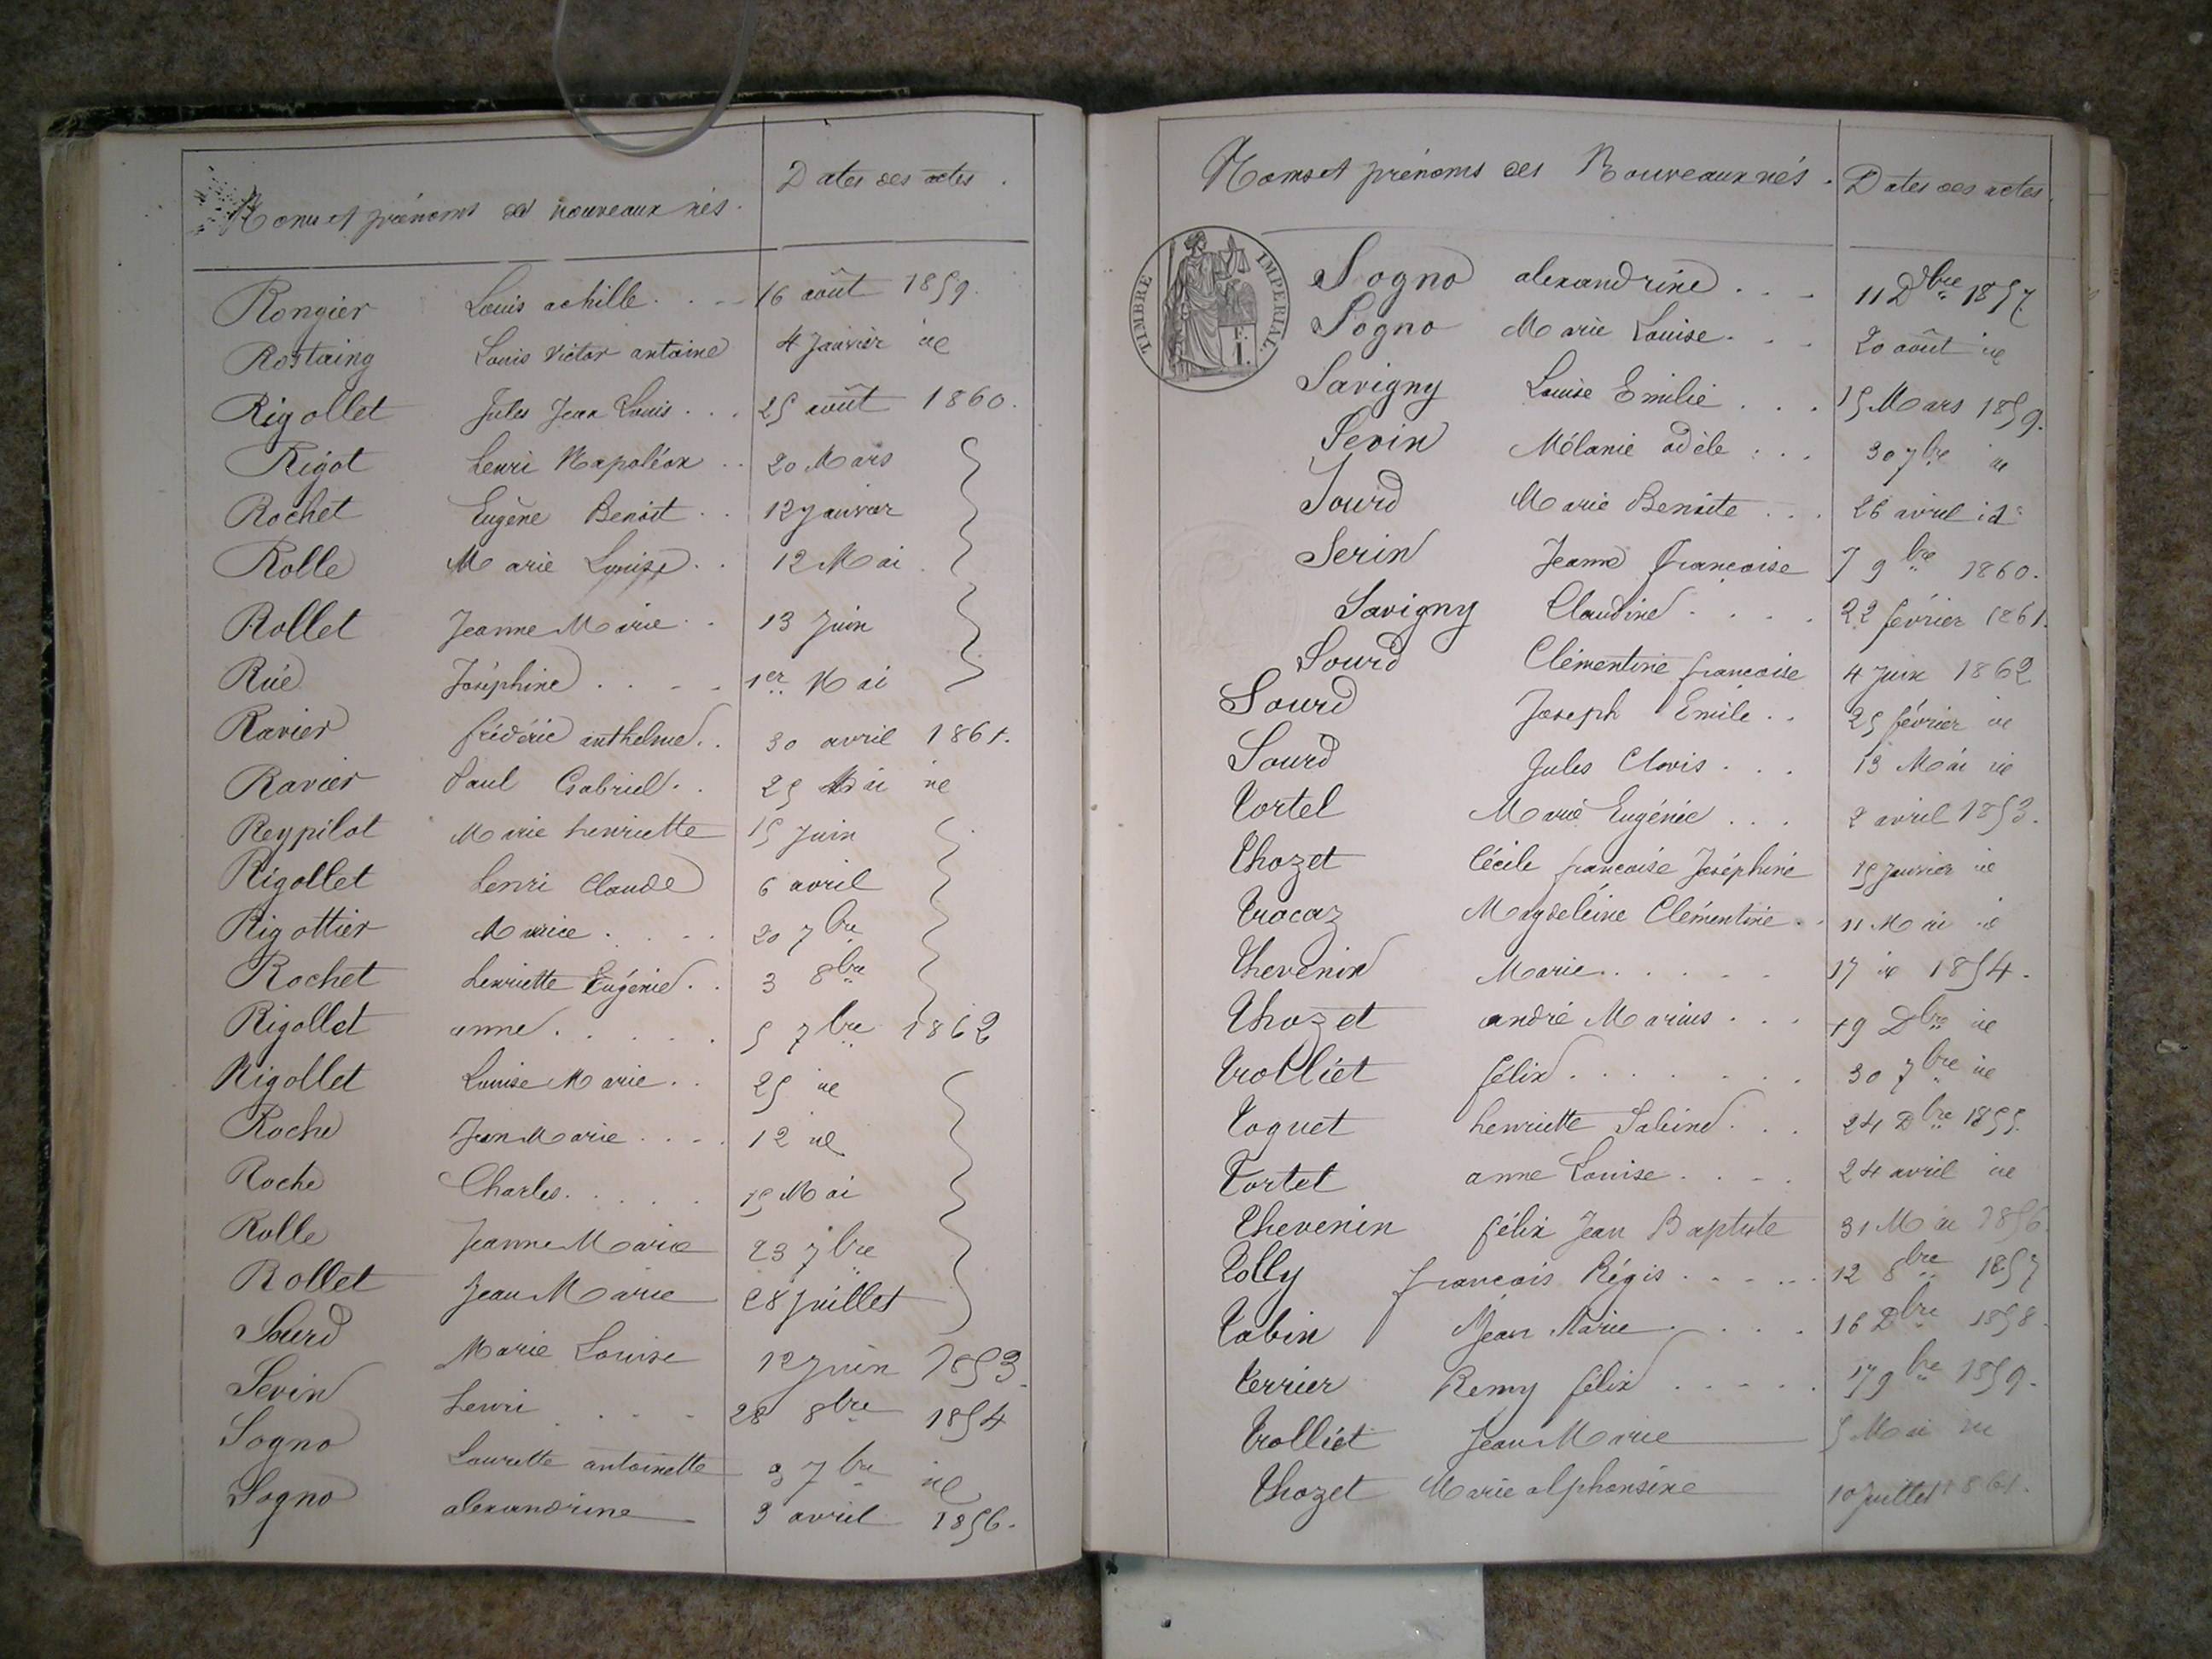 Noms et prénoms des nouveaux nés.
Dates des actes.
Rongier Louis achille. . . 16 août 1859.
Rostaing Louis Victor antoine 4 Janvier id
Rigollet Jules Jean Louis . . . 25 août 1860.
Rigot henri Napoléon . . 20 Mars
Rochet Eugène Benoit . . 12 Janvier
Rolle Marie Louise . . 12 Mai
Rollet Jeanne Marie . . 13 Juin
Rüe Joséphine . . . . 1er Mai
Ravier frédéric anthelme . . 30 avril 1861.
Ravier Paul Gabriel . . 25 Mai id
Reypilot Marie henriette 15 Juin
Rigollet henri Claude 6 avril
Rigottier Marie . . . . 20 7bre
Rochet henriette Eugénie . . 3 8bre
Rigollet anne . . . . . 5 7bre 1862
Rigollet Louise Marie . . 25 id
Roche Jean Marie . . . . 12 id
Roche Charles . . . . . 15 Mai
Rolle Jeanne Marie 23 7bre
Rollet Jean Marie 28 Juillet
Sourd Marie Louise 12 Juin 1853.
Serin henri . . . . 28 8bre 1854
Sogno Laurette antoinette 3 7bre id
Sogno alexandrine 3 avril 1856.
Noms et prénoms des Nouveaux nés.
Dates des actes.
TIMBRE IMPERIAL.
Sogno alexandrine . . . 11 Dbre 1857.
Sogno Marie Louise . . . 20 août id
Savigny Louise Emilie . . . 15 Mars 1859.
Serin Mélanie adèle . . . 30 7bre id
Sourd Marie Benoite . . . 26 avril id
Serin Jeanne françoise 7 9bre 1860.
Savigny Claudine . . . . 22 février 1861.
Sourd Clémentine françoise 4 Juin 1862
Sourd Joseph Emile . . 25 février id
Sourd Jules Clovis . . . 13 Mai id
Tortel Marie Eugénie . . . 2 avril 1853.
Thozet Cécile françoise Joséphine 15 Janvier id
Trocaz Magdeleine Clémentine . . 11 Mai id
Thevenin Marie . . . . . . 17 id 1854.
Thozet andré Marius . . . 19 Dbre id
Trolliet félix . . . . . . . 30 7bre id
Toquet henriette Sabine . . . 24 Dbre 1855.
Tortel anne Louise . . . . 24 avril id
Thevenin félix Jean Baptiste 31 Mai 1856.
Tolly françois Régis . . . . . 12 8bre 1857
Tabin Jean Marie . . . . 16 Dbre 1858.
Terrier Remy félix . . . . . 17 9bre 1859.
Trolliet Jean Marie 5 Mai id
Thozet Marie alphonsine 10 Juillet 1861.